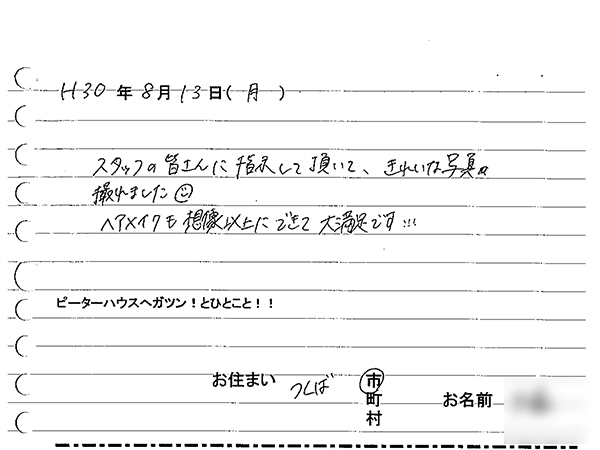 H30年8月13日(月)
スタッフの皆さんに指示して頂いて、きれいな写真が
撮れました☺
ヘアメイクも想像以上にできて大満足です!!!
ピーターハウスへガツン!とひとこと!!
お住まい つくば 市 お名前
町
村